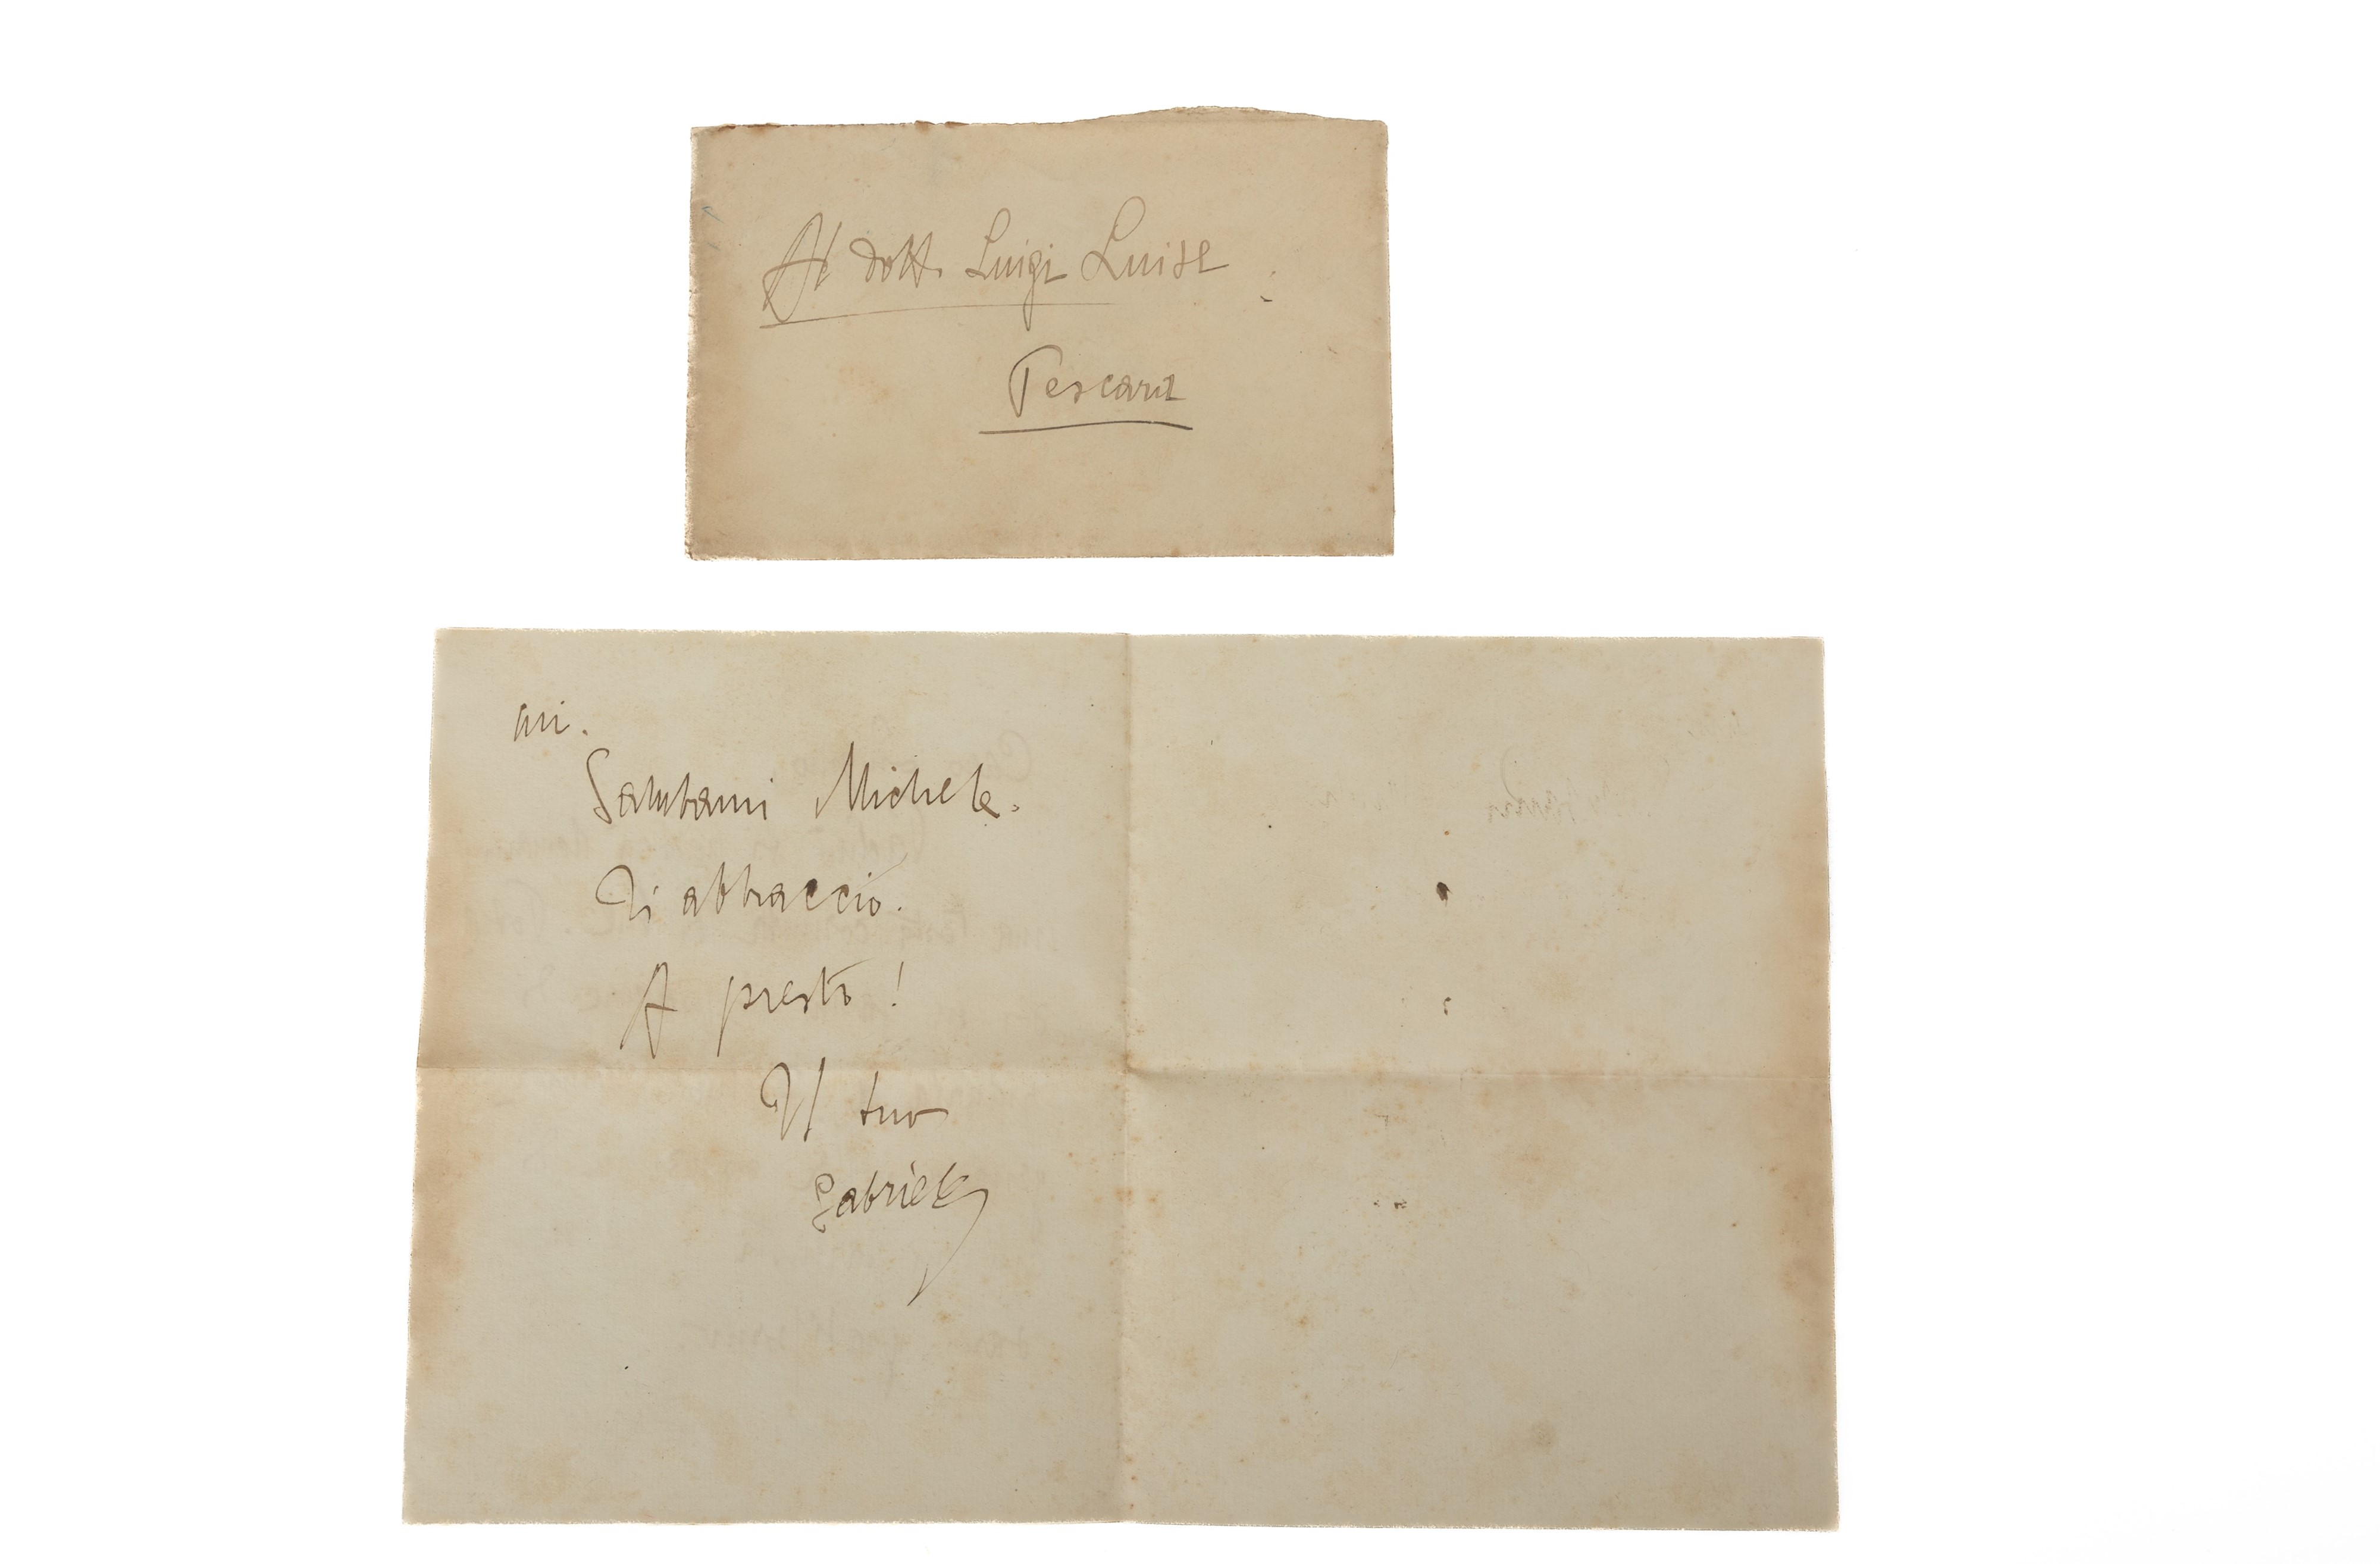 Al dott. Luigi Luise
Pescara
mi.
Salutami Michele.
Ti abbraccio.
A presto!
Il tuo
Gabriele